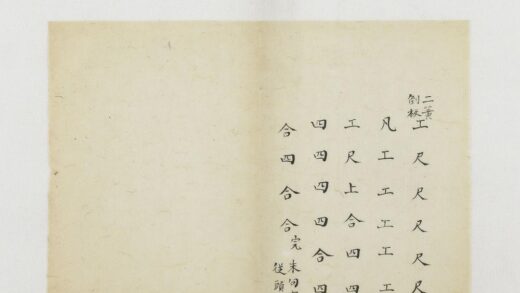 二黃
倒板
工尺尺尺尺尺
凡工工工工工
工尺上合四四
四四四四合四
合四合合完末句
從頭